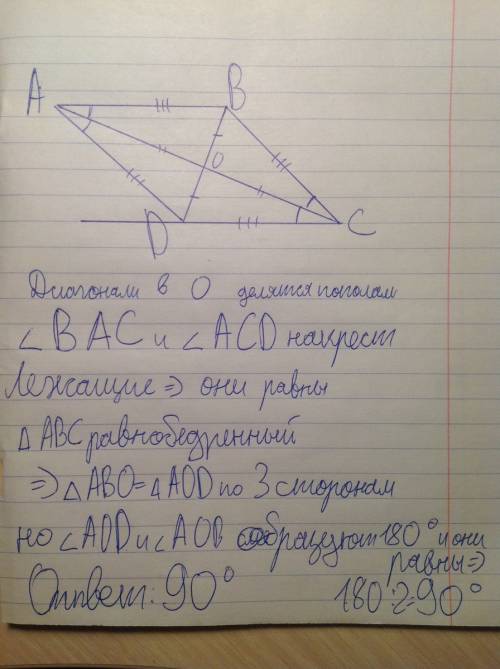 A
B
O
D
C
Диагонали в O делятся пополам
∠BAC и ∠ACD накрест
лежащие => они равны
△ABC равнобедренный
=> △ABO=△AOD по 3 сторонам
но ∠AOD и ∠AOB образуют 180° и они
равны =>
Ответ: 90°
180:2=90°